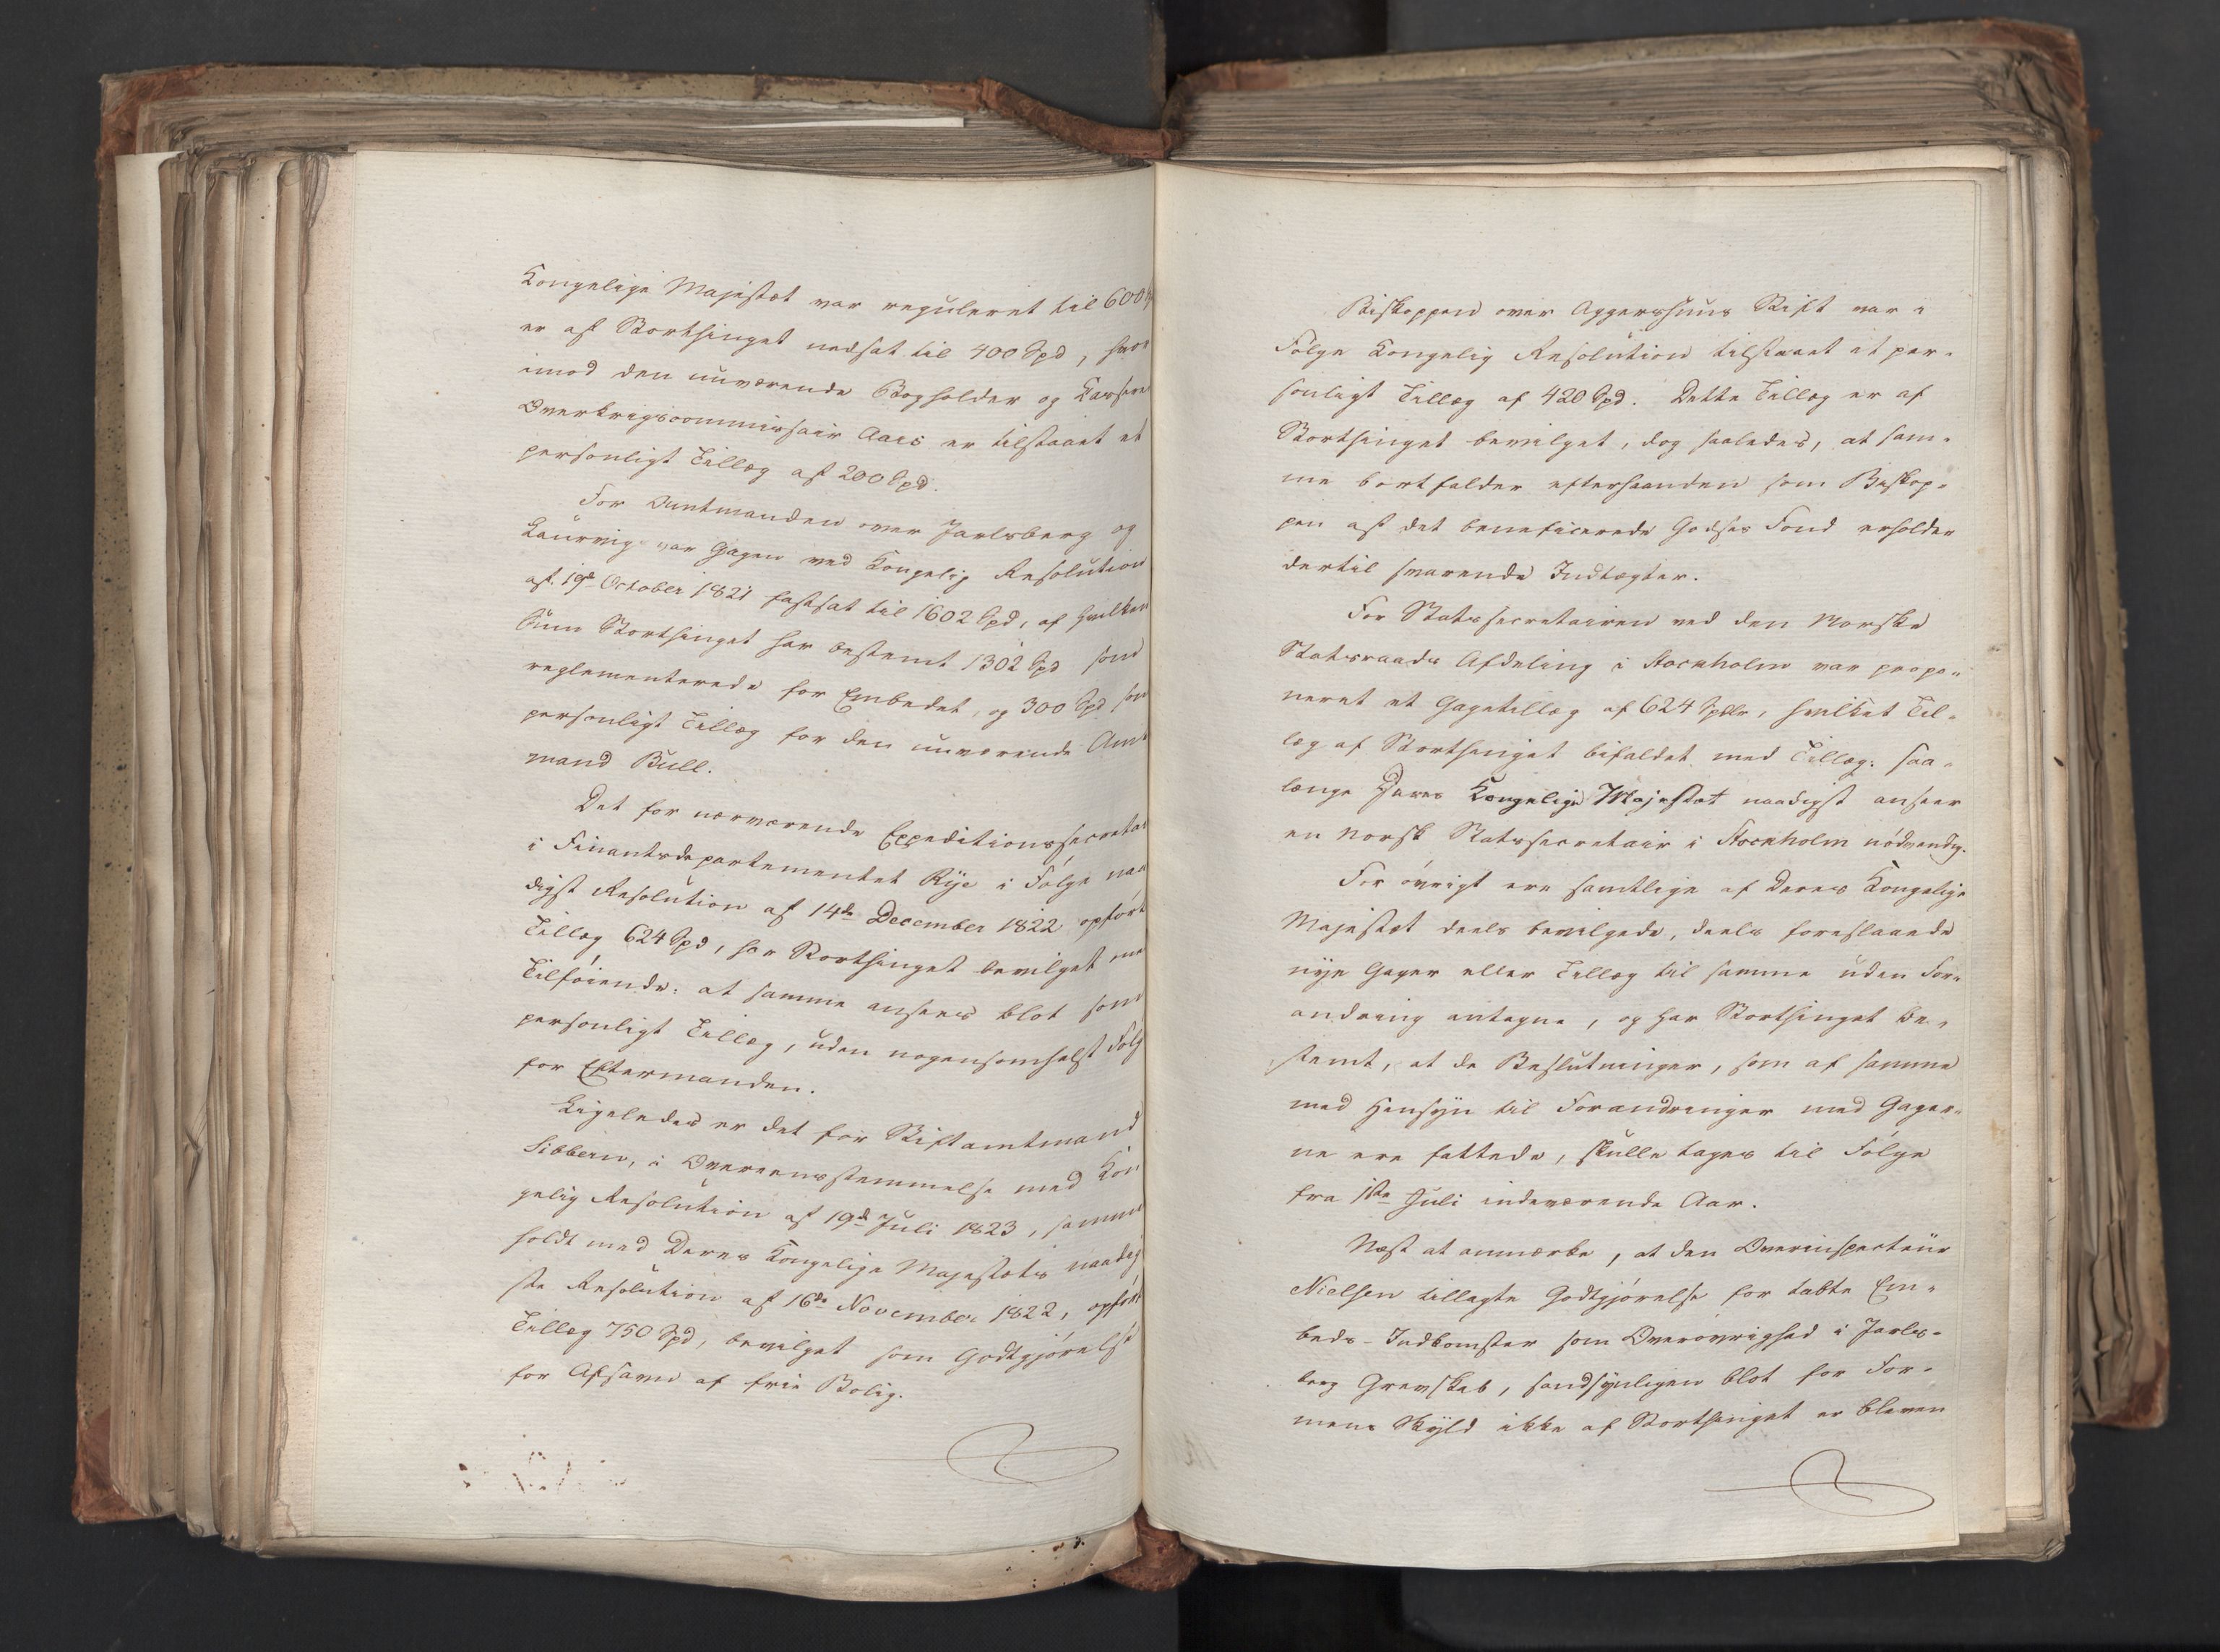 Kongelige Majestæt var reguleret til 600
er af Storthinget nedsat til 400 Spd, hvor
imod den nuværende Bogholder og Kasserer
Overkrigscommissair Aars er tilstaaet et
personligt Tillæg af 200 Spd.
For Amtmanden over Jarlsberg og
Laurvig var Gagen ved Kongelig Resolution
af 19de October 1821 fastsat til 1602 Spd, af hvilken
Sum Storthinget har bestemt 1302 Spd som
reglementerede for Embedet, og 300 Spd som
personligt Tillæg for den nuværende Amt
mand Bull.
Det for nærværende Expeditionssecretai
i Finantsdepartementet Rye i Følge naa
digst Resolution af 14de December 1822 opført
Tillæg 624 Spd, har Storthinget bevilget me
Tilføiende: at samme ansees blot som
personligt Tillæg, uden nogensomhelst Følg
for Eftermanden.
Ligeledes er det for Stiftamtmand
Sibbern, i Overeensstemmelse med Kon
gelig Resolution af 19de Juli 1823, sammen
holdt med Deres Kongelige Majestæts naadig
ste Resolution af 16de November 1822, opført
Tillæg 750 Spd, bevilget som Godtgjørelse
for Afsavn af frie Bolig.
Biskoppen over Aggershuus Stift var i
Følge Kongelig Resolution tilstaaet et per-
sonligt Tillæg af 420 Spd. Dette Tillæg er af
Storthinget bevilget, dog saaledes, at sam-
me bortfalder efterhaanden som Biskop-
pen af det beneficerede Godses Fond erholder
dertil svarende Indtægter.
For Statssecretairen ved den Norske
Statsraads Afdeling i Stockholm var propo-
neret et Gagetillæg af 624 Spdlr, hvilket Til-
læg af Storthinget bifaldet med Tillæg: saa-
længe Deres Kongelige Majestæt naadigst anseer
en norsk Statssecretair i Stockholm nødvendig.
For øvrigt ere samtlige af Deres Kongelige
Majestæt deels bevilgede, deels foreslaaede
nye Gager eller Tillæg til samme uden For-
andring antagne, og har Storthinget be-
stemt, at de Beslutninger, som af samme
med Hensyn til Forandringer med Gager-
ne ere fattede, skulle tages til Følge
fra 1ste Juli indeværende Aar.
Næst at anmærke, at den Overinspecteur
Nielsen tillagte Godtgjørelse for tabte Em-
beds-Indkomster som Overøvrighed i Jarls-
berg Grevskab, sandsynligen blot for For-
mens Skyld ikke af Storthinget er bleven